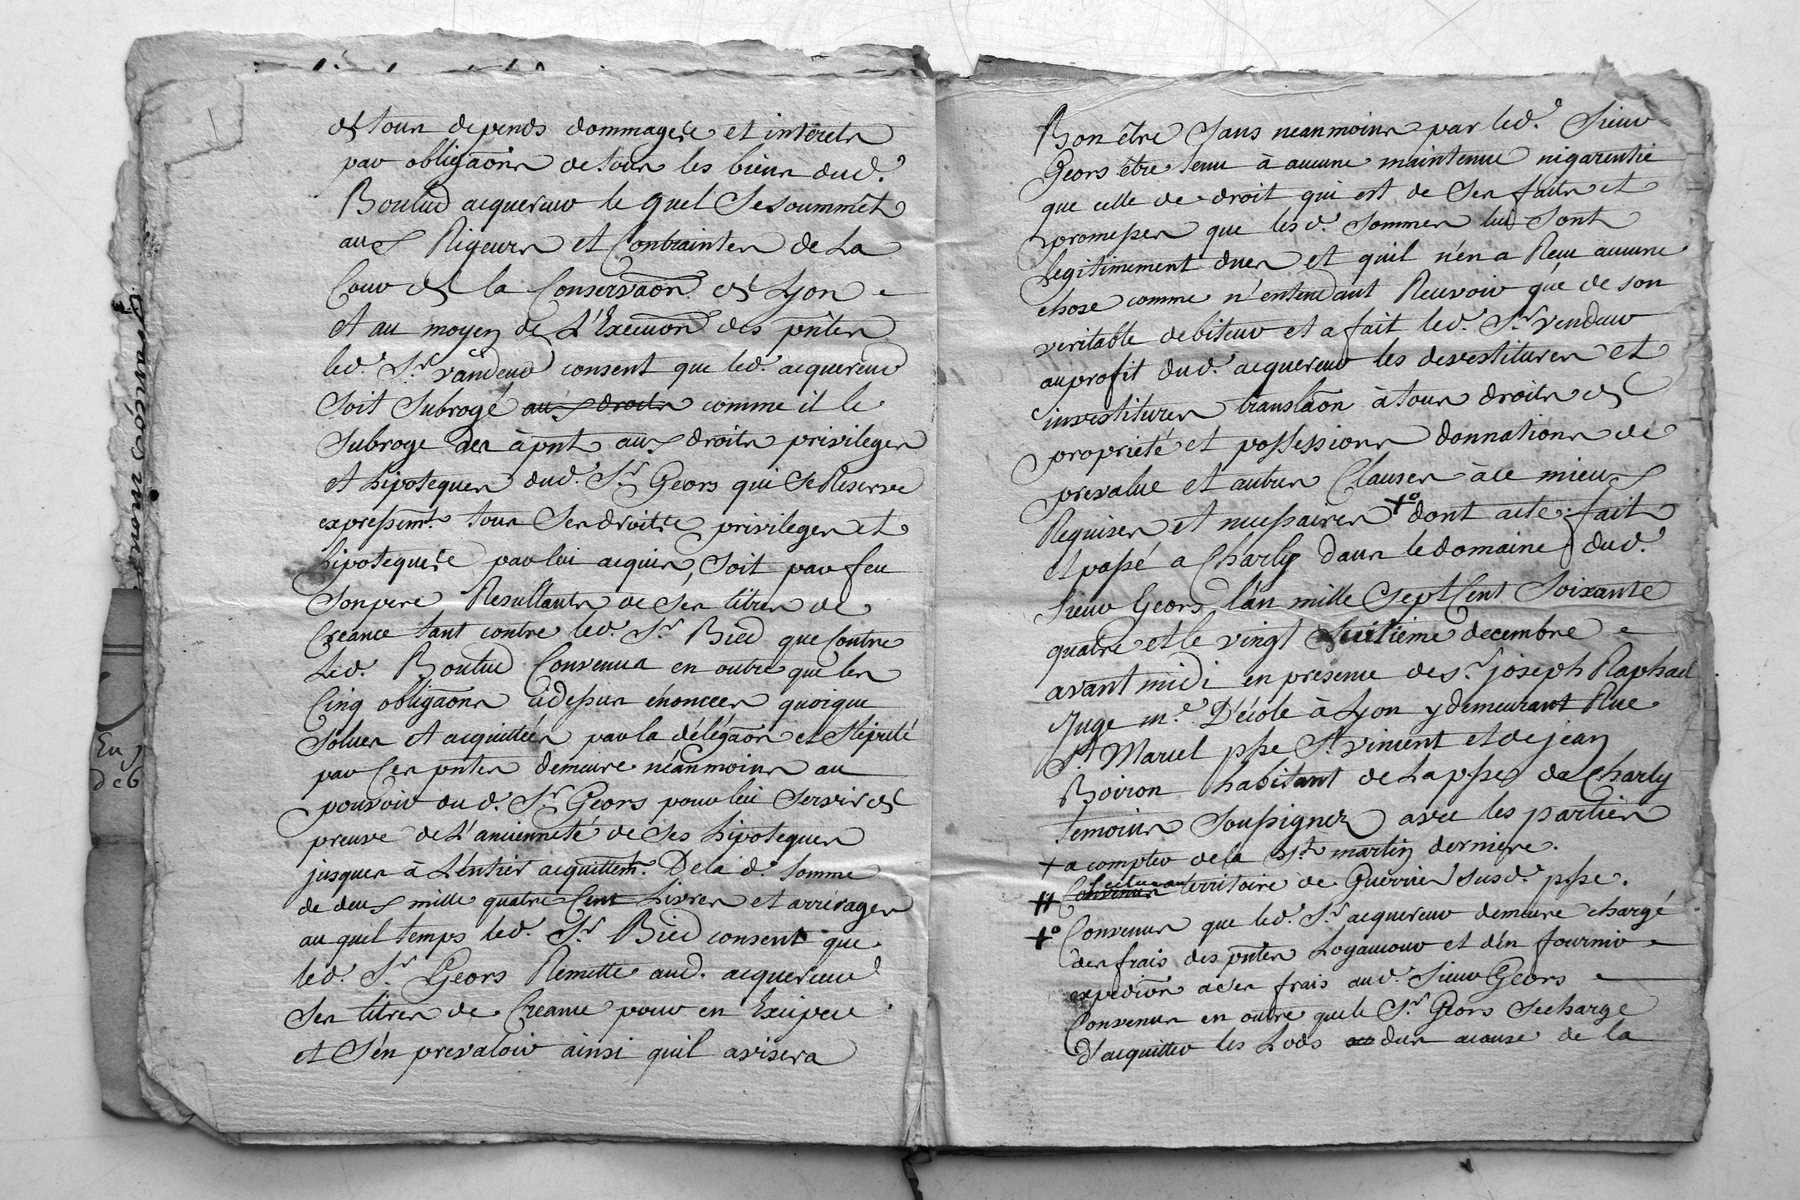 de tous depends dommages et interets
par obligaõns de tous les biens dud.
Boulud acquereur le quel se soummet
aux Rigeurs et Contraintes de La
Cour de la Conservaõn de Lyon
Et au moyen de L'Execuõn des pñtes
led. Sr. vandeur consent que led. acquereur
soit subrogé aux droits comme il le
subroge des àpñt aux droits privileges
et hipoteques dud. Sr. Geors qui se Reserve
expressemt. tous ses droits privileges et
hipoteques par lui acquis, soit par feu
son pere Resultants de ses titres de
Creance tant contre led. Sr. Bied que Contre
Led. Boulud Convenus en outre que les
Cinq obligaõns cidessus énoncees quoique
solues et acquittées par la délégaõn et stipulé
par Ces pñtes demeure néanmoins au
pouvoir dud. Sr. Geors pour lui servir de
preuve de L'ancienneté de ses hipoteques
jusques à L'entier acquittemt. De la d. somme
de deux mille quatre Cent Livres et arrérages
au quel temps led. Sr. Bied consent que
led. Sr. Geors Remette aud. acquereur
ses titres de Creance pour en Exciper
et s'en prevaloir ainsi quil avisera
Bon être sans neanmoins par led. Sieur
Geors être tenu à aucune maintenue nigarentie
que celle de droit qui est de ses faits et
promesses que lesd. sommes lui sont
legitimement dues et quil n'en a Recu aucune
chose comme n'entendant Recevoir que de son
veritable debiteur et a fait led. Sr. vendeur
au profit dud. acquereur les devestitures et
investitures translaõn à tous droits de
propriété et possessions donnations de
prevalue et autres Clauses à ce mieux
Requises et necessaires +° dont acte: fait
et passé a Charly dans le domaine dud.
Sieur Geors, l'an mille Sept Cent Soixante
quatre et le vingt huitième decembre
avant midi en presence de Sr. joseph Raphael
Juge me. D'école à Lyon y demeurant Rue
St. Marcel psse St. vincent et de jean
Boiron habitant de La psse de Charly
temoins soussignez avec les parties
+ a compter de la St. martin derniere.
Convenus
# territoire de Guerrier susd. psse.
+° Convenus que led. Sr. acquereur demeure chargé
des frais des pñtes Loyaucour et d'en fournir
expediõn à ses frais aud. Sieur Geors
Convenus en outre que le Sr. Geors se charge
d'acquitter les Lods dus acause de la
François